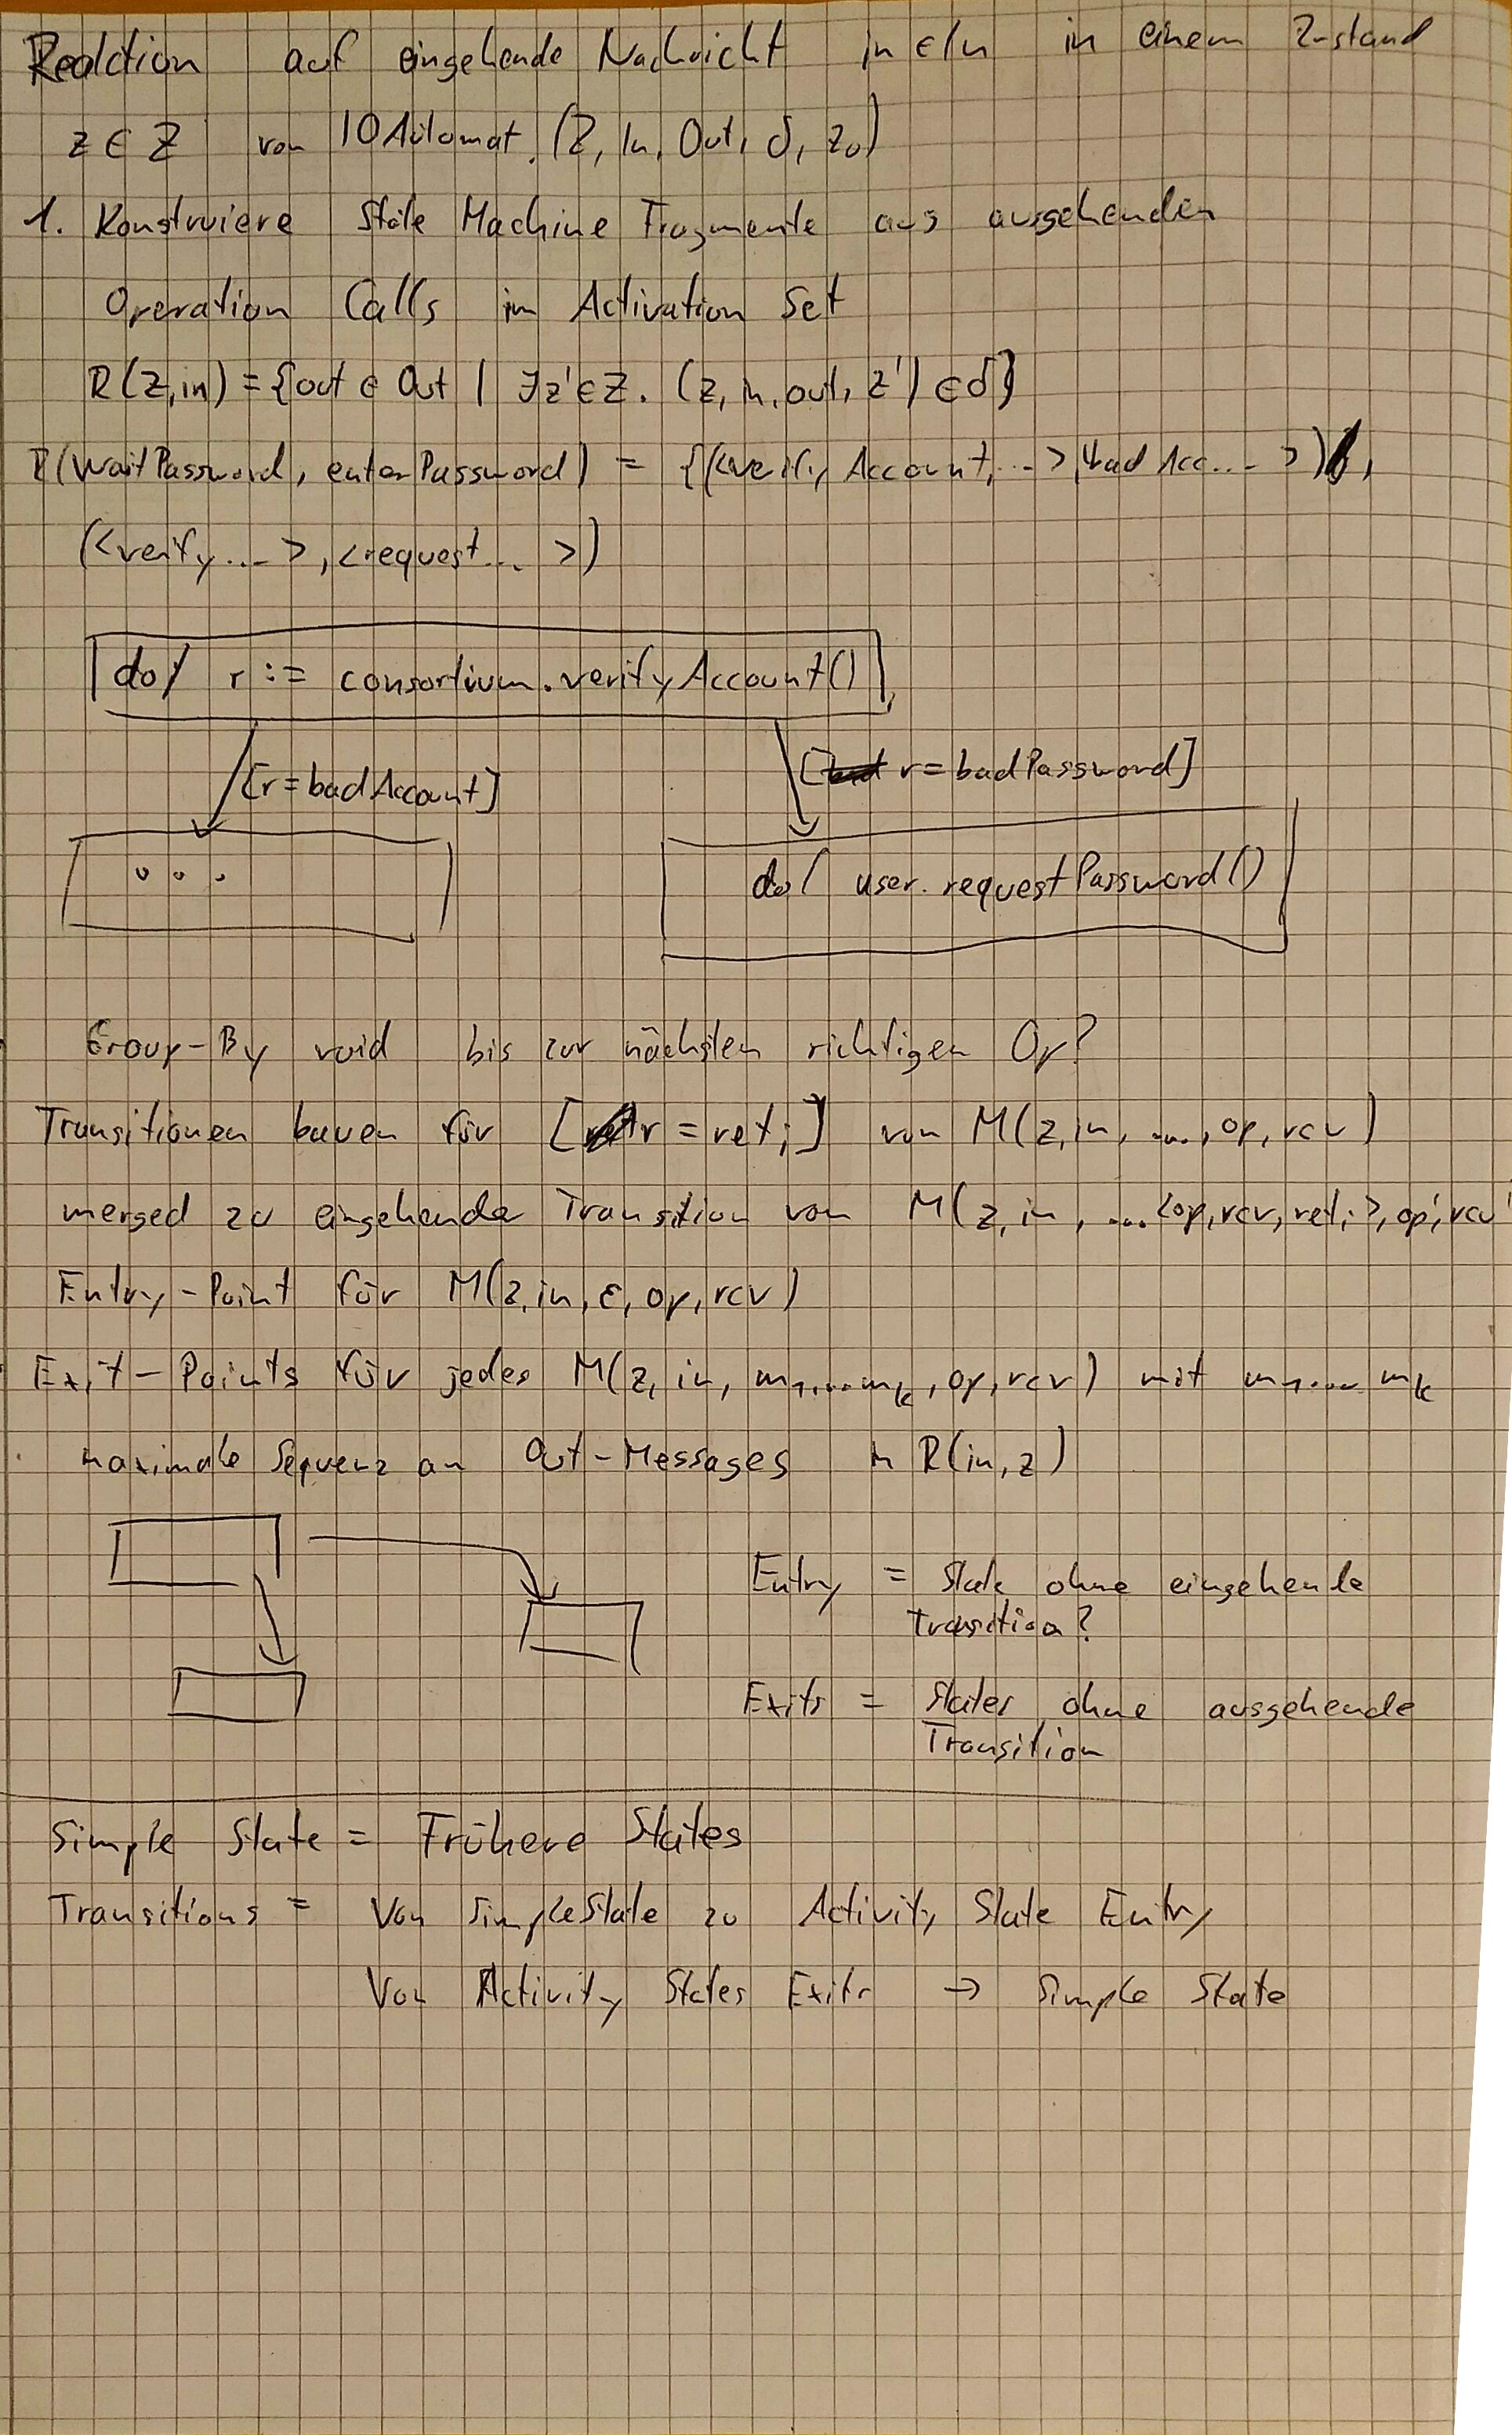 Reaktion auf eingehende Nachricht in ∈ In in einem Zustand
z ∈ Z von IOAutomat (Z, In, Out, δ, z₀)
1. Konstruiere State Machine Fragmente aus ausgehenden
Operation Calls in Activation Set
R(z,in) = {out ∈ Out | ∃z'∈Z. (z, in, out, z') ∈ δ}
R(WaitPassword, enterPassword) = {(<verify Account, ...>, <bad Acc... >),
(<verify ... >, <request ... >)
do/ r := consortium.verifyAccount()
[r=badAccount]
[r=badPassword]
...
do/ user.requestPassword()
Group-By void bis zur nächsten richtigen Op?
Transitionen bauen für [r = retᵢ] von M(z, in, ..., op, rcv)
merged zu eingehende Transition von M(z, in, ... <op, rcv, retᵢ>, op', rcv'
Entry-Point für M(z, in, ε, op, rcv)
Exit-Points für jedes M(z, in, m₁, ... mₖ, op, rcv) mit m₁ ... mₖ
maximale Sequenz an Out-Messages in R(in, z)
Entry = State ohne eingehende
Transition?
Exits = States ohne ausgehende
Transition
Simple State = Frühere States
Transitions = Von SimpleState zu Activity State Entry
Von Activity States Exits → Simple State